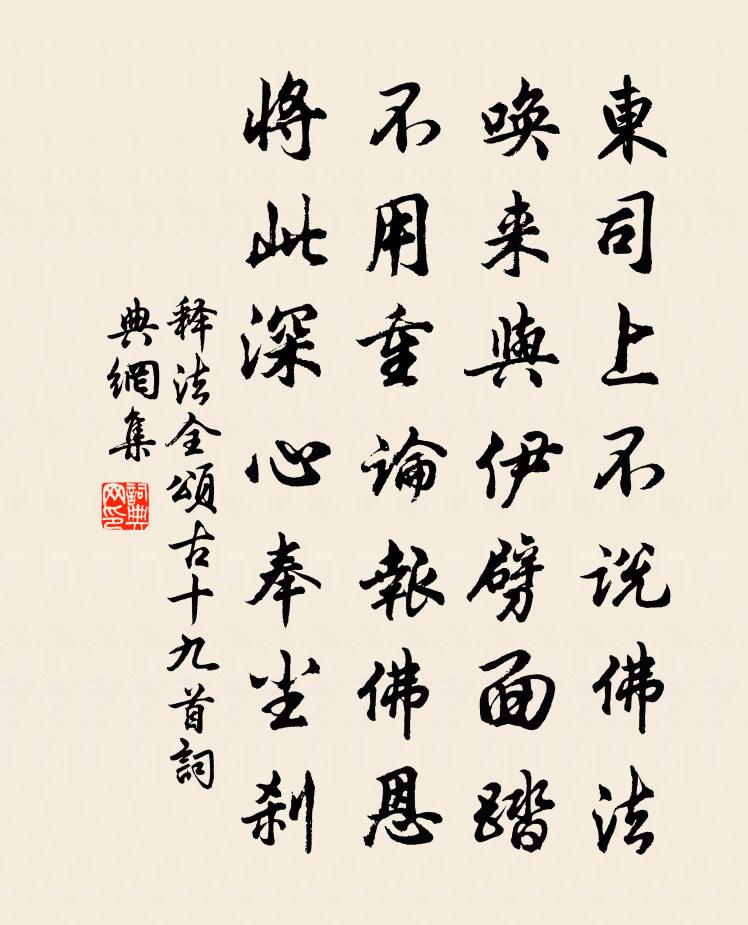 東司上不说佛法
唤来與伊劈面踏
不用重論報佛恩
将此深心奉尘刹
释法全頌古十九首詞
典網集
詞典网印